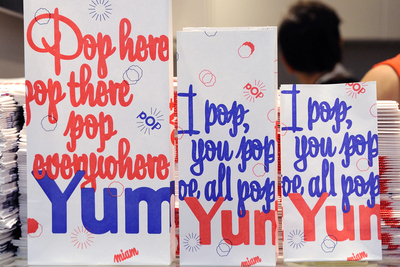 Pop here
pop there
pop
everywhere
Yum
POP
miam
I pop,
you pop
we all pop
Yum
POP
miam
I pop,
you pop
we all pop
Yum
POP
miam